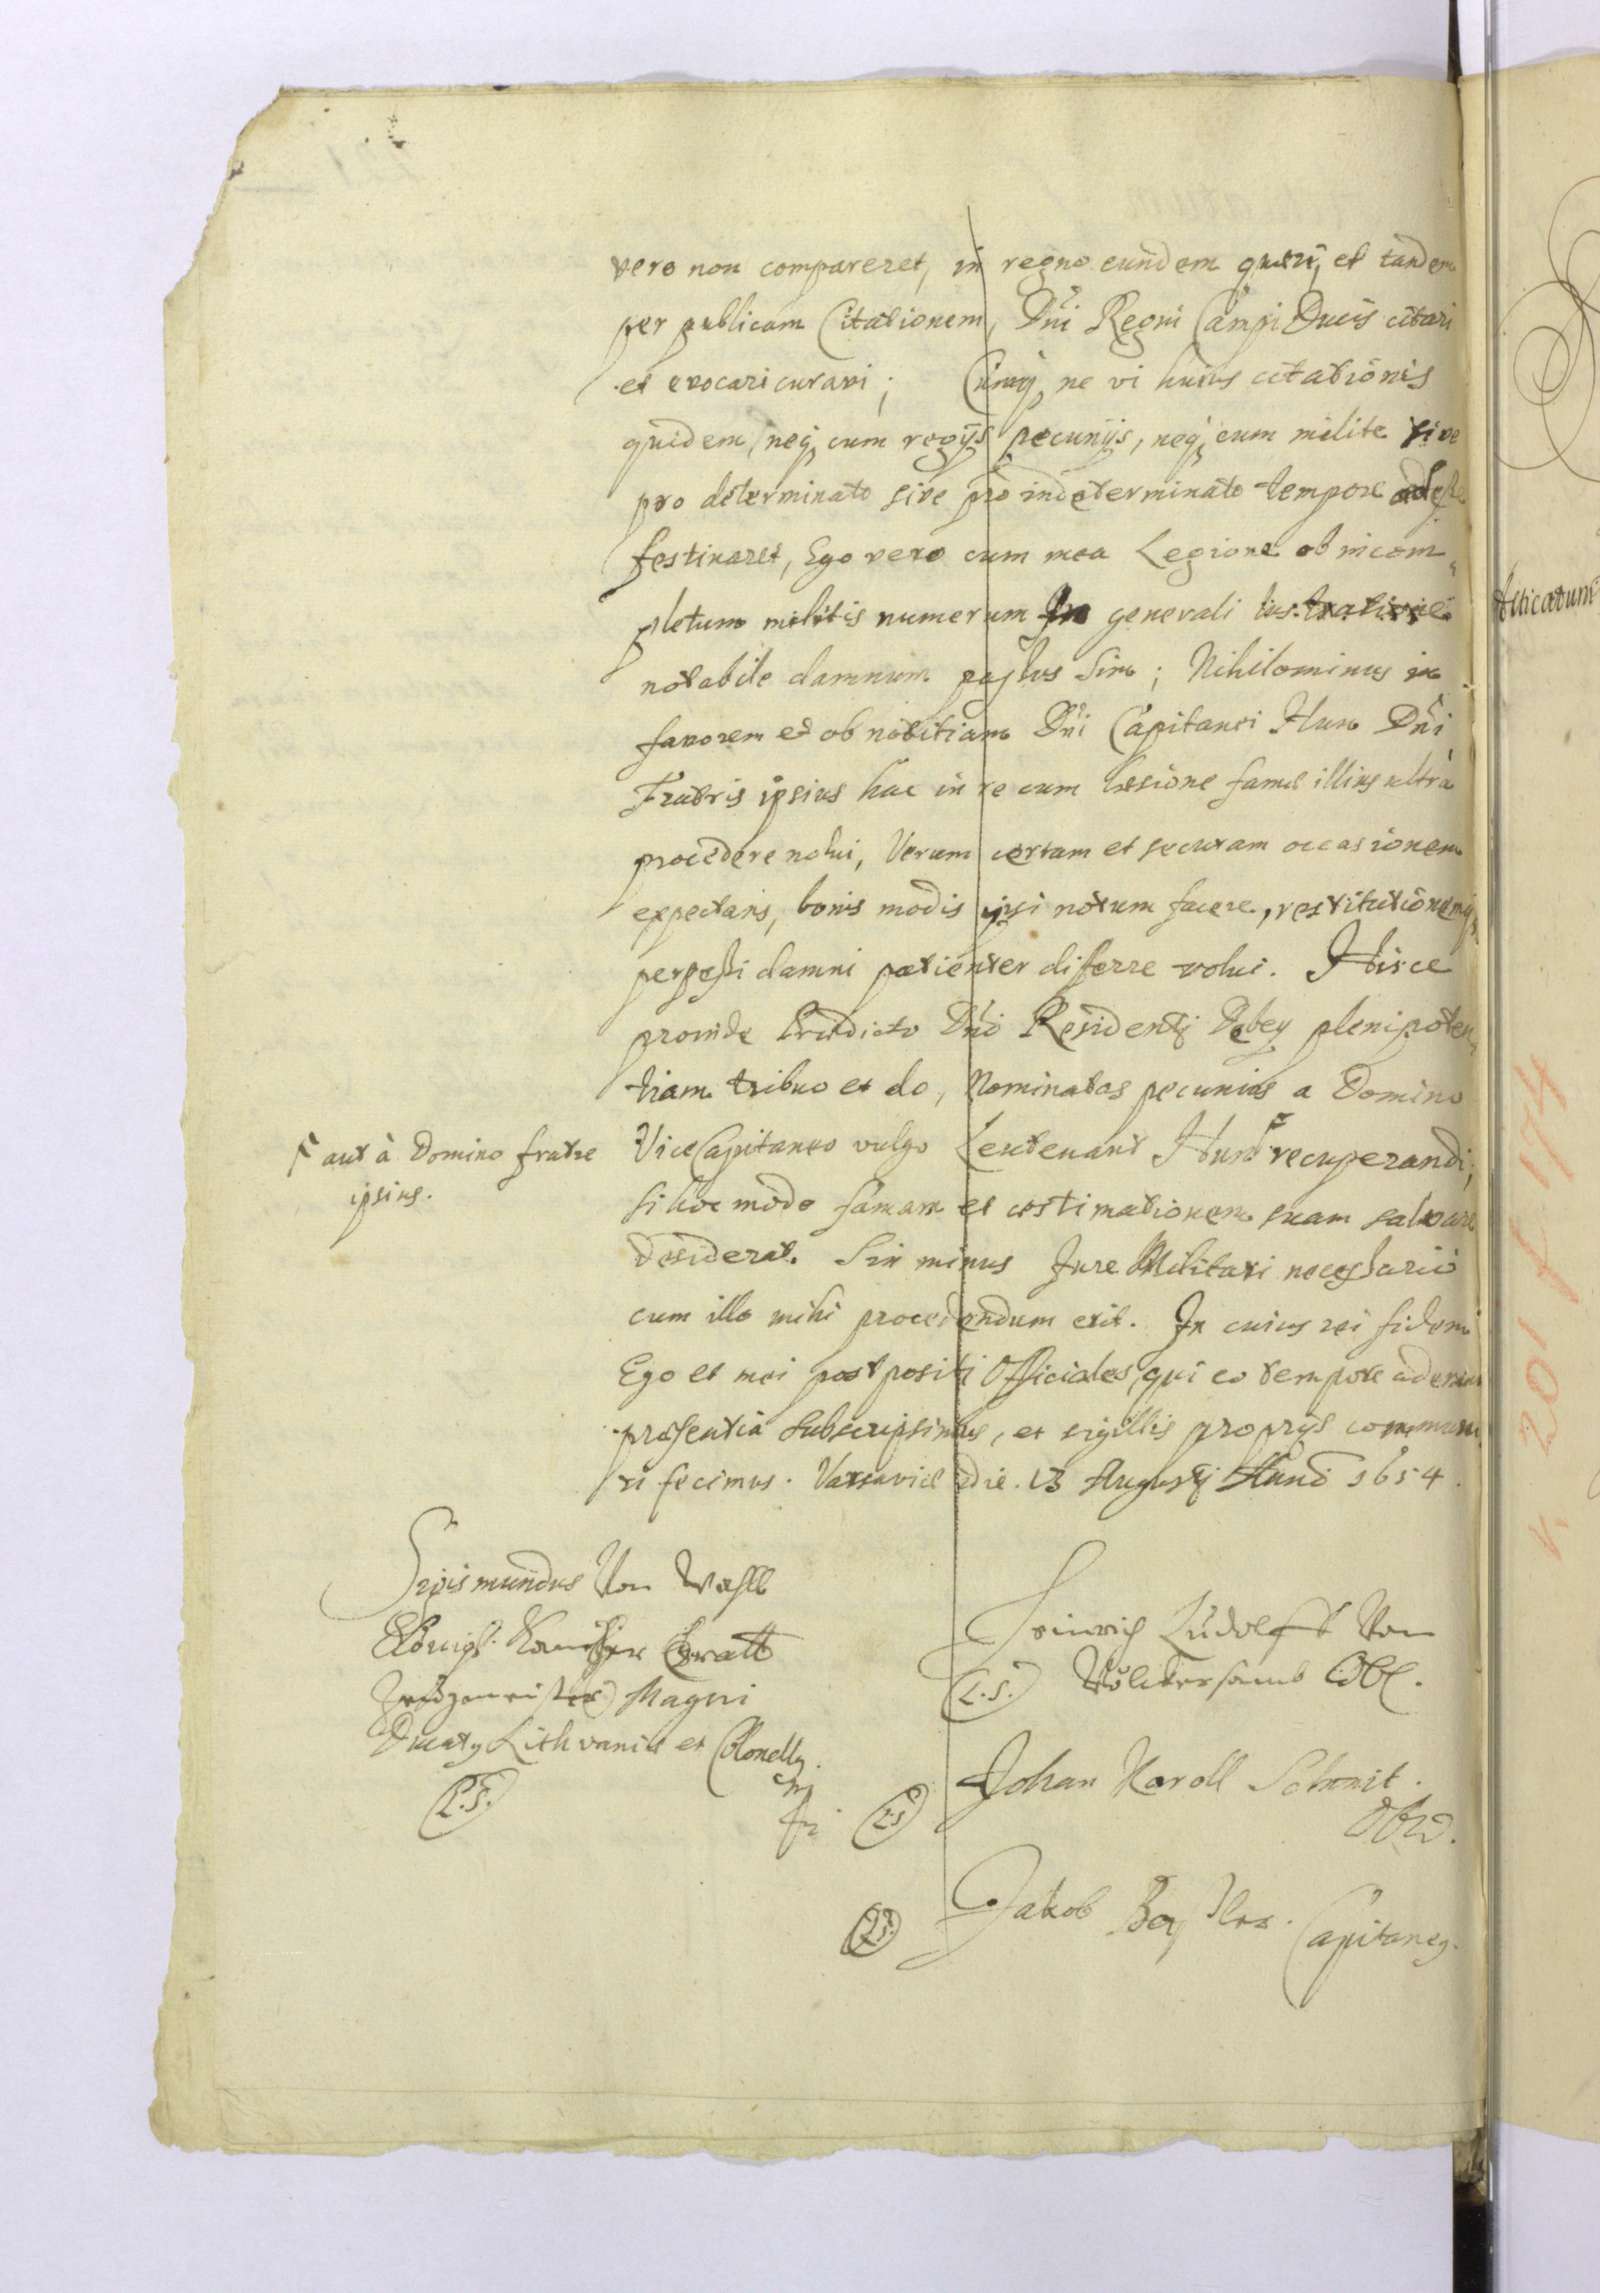 vero non compareret, in regno eundem quæri, et tandem
per publicam Citationem, Dni Regni Campi Ducis citari
et evocari curavi; Cumq, ne vi huius citationis
quidem, neq, cum regijs pecunijs, neq, cum milite sive
pro determinato sive pro indeterminato tempore adesse
festinaret, Ego vero cum mea Legione ob incom-
pletum militis numerum in generali lustratione
notabile damnum passus sim; Nihilominus in
favorem et ob notitiam Dni Capitanei Hun Dni
Fratris ipsius hac in re cum læsione famæ illius ultrà
procedere nolui, Verum certam et securam occasionem
expectans, bonis modis ipsi notum facere, restitutionemq,
perpessi damni patienter differre volui. Hisce
proinde Prædicto Dno Residenti Debey plenipoten-
tiam tribuo et do, Nominatas pecunias a Domino
Vice Capitaneo vulgo Leutenant Hun recuperandi;
aut à Domino fratre
ipsius.
si hoc modo famam et æstimationem suam salvare
desiderat. Sin minus Jure Militari necessariò
cum illo mihi procedendum erit. In cuius rei fidem
Ego et mei postpositi Officiales, qui eo tempore aderant
præsentia subscripsimus, et sigillis proprijs communi
ri fecimus. Varsaviæ die. 13 Augusti Anno 1654.
Sigismundus Von Wahll
Magni
Ducatq Lithvaniæ et Colonellq.
(L.S.)
Heinrich Ludolfft Von
(L.S.) Völckersamb Obl.
(L.S.) Johan Karoll Schmit.
(L.S.) Jakob Capitaneq.
Aticatum